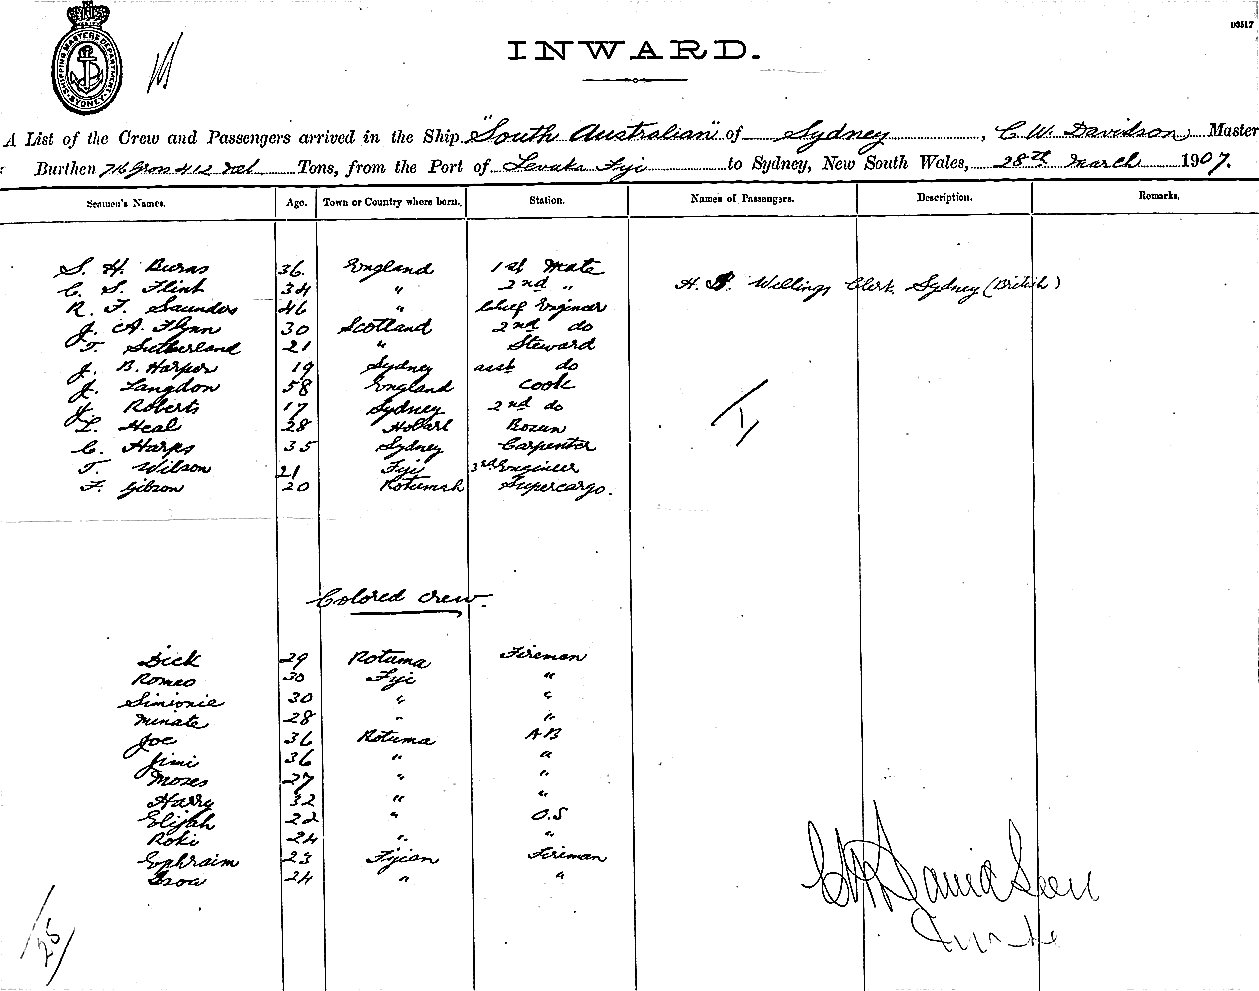 SHIPPING MASTERS DEPARTMENT. SYDNEY
03517
INWARD.
A List of the Crew and Passengers arrived in the Ship "South Australian" of Sydney, C W Davidson, Master
Burthen 716 Gross 412 net Tons, from the Port of Levuka Fiji to Sydney, New South Wales, 28th March 1907.
Seamen's Names. Age. Town or Country where born. Station. Names of Passengers. Description. Remarks.
S. H. Burns 36. England 1st Mate
C. S. Flint 34 " 2nd " H. Wellings Clerk Sydney (British)
R. F. Saunders 46 " Chief Engineer
J. A. Flynn 30 Scotland 2nd do
T. Sutherland 21 " Steward
J. B. Harper 19 Sydney asst do
J. Langdon 58 England Cook
J. Roberts 17 Sydney 2nd do
L. Heal 28 Hobart Bosun
C. Harps 35 Sydney Carpenter
T. Wilson 21 Fiji 3rd Engineer
F. Gibson 20 Rotumah Supercargo.
1
Colored Crew.
Dick 29 Rotuma Fireman
Romeo 30 Fiji "
Simionie 30 " "
Minate 28 " "
Joe 36 Rotuma AB
Jimi 36 " "
Moses 27 " "
Harry 32 " "
Elijah 22 " O.S
Roki 24 " "
Ephraim 23 Fijian Fireman
24 " "
C W Davidson
25